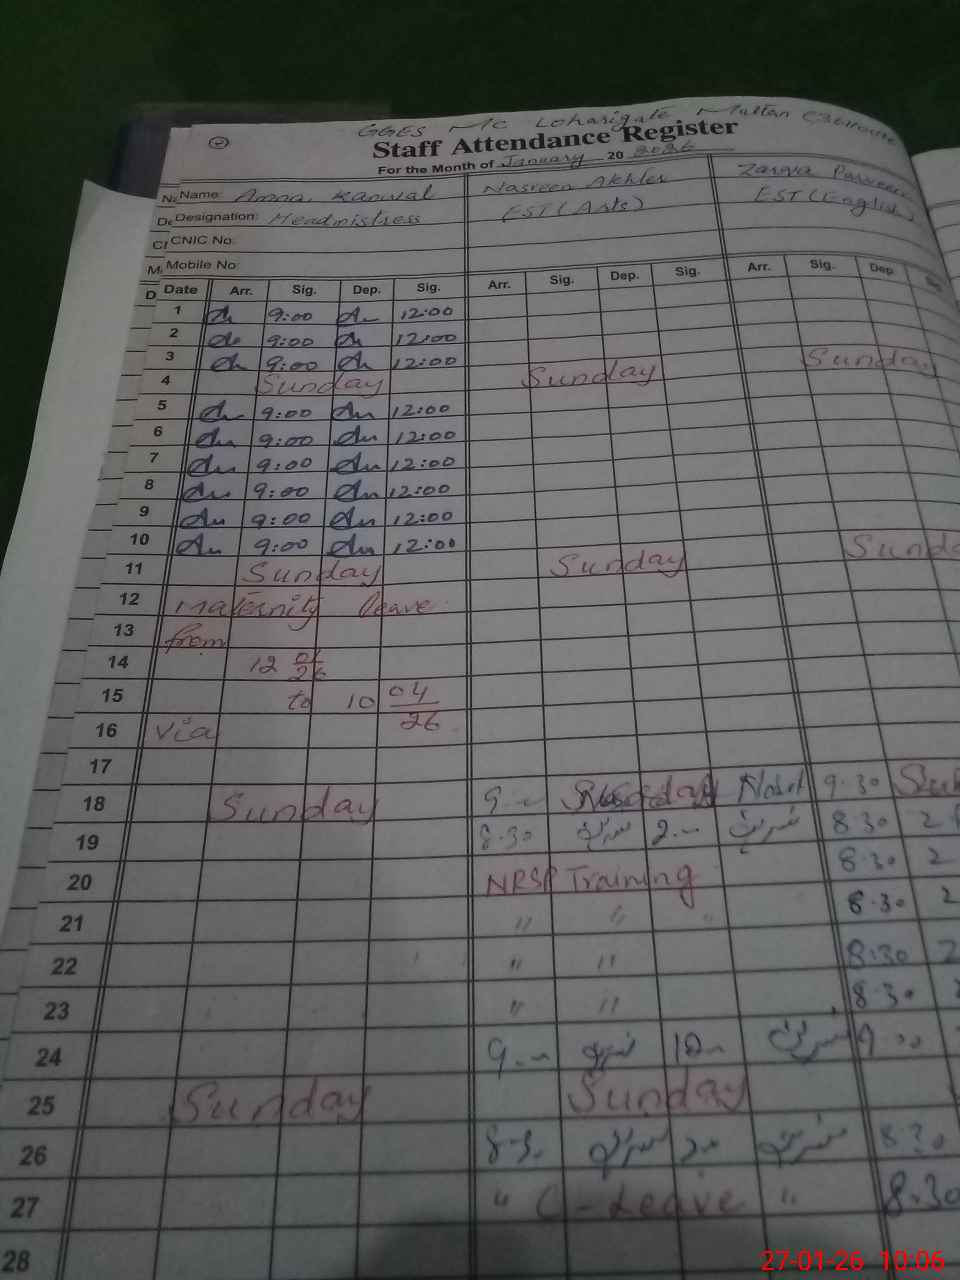 GGES MC Loharigate Multan
Staff Attendance Register
For the Month of January 20 2026
Name: Amna Kanwal Nasreen Akhter Zarqa Parveen
Designation: Headmistress EST (Arts) EST (English)
CNIC No:
Mobile No:
Date Arr. Sig. Dep. Sig. Arr. Sig. Dep. Sig. Arr. Sig. Dep.
1 9:00 12:00
2 9:00 12:00
3 9:00 12:00
4 Sunday Sunday Sunday
5 9:00 12:00
6 9:00 12:00
7 9:00 12:00
8 9:00 12:00
9 9:00 12:00
10 9:00 12:00
11 Sunday Sunday Sunday
12 Maternity leave
13 from
14 12 01/26
15 to 10 04/26
16 via
17
18 Sunday 9.30
19 8.30 2.- 8.30 2
20 NRSP Training 8.30 2
21 " " " 8.30 2
22 " " 8:30 2
23 " " 8.30
24 9.- 9.00
25 Sunday Sunday
26 8.30 8.30
27 " C-Leave " 8.30
28
27-01-26 10:06